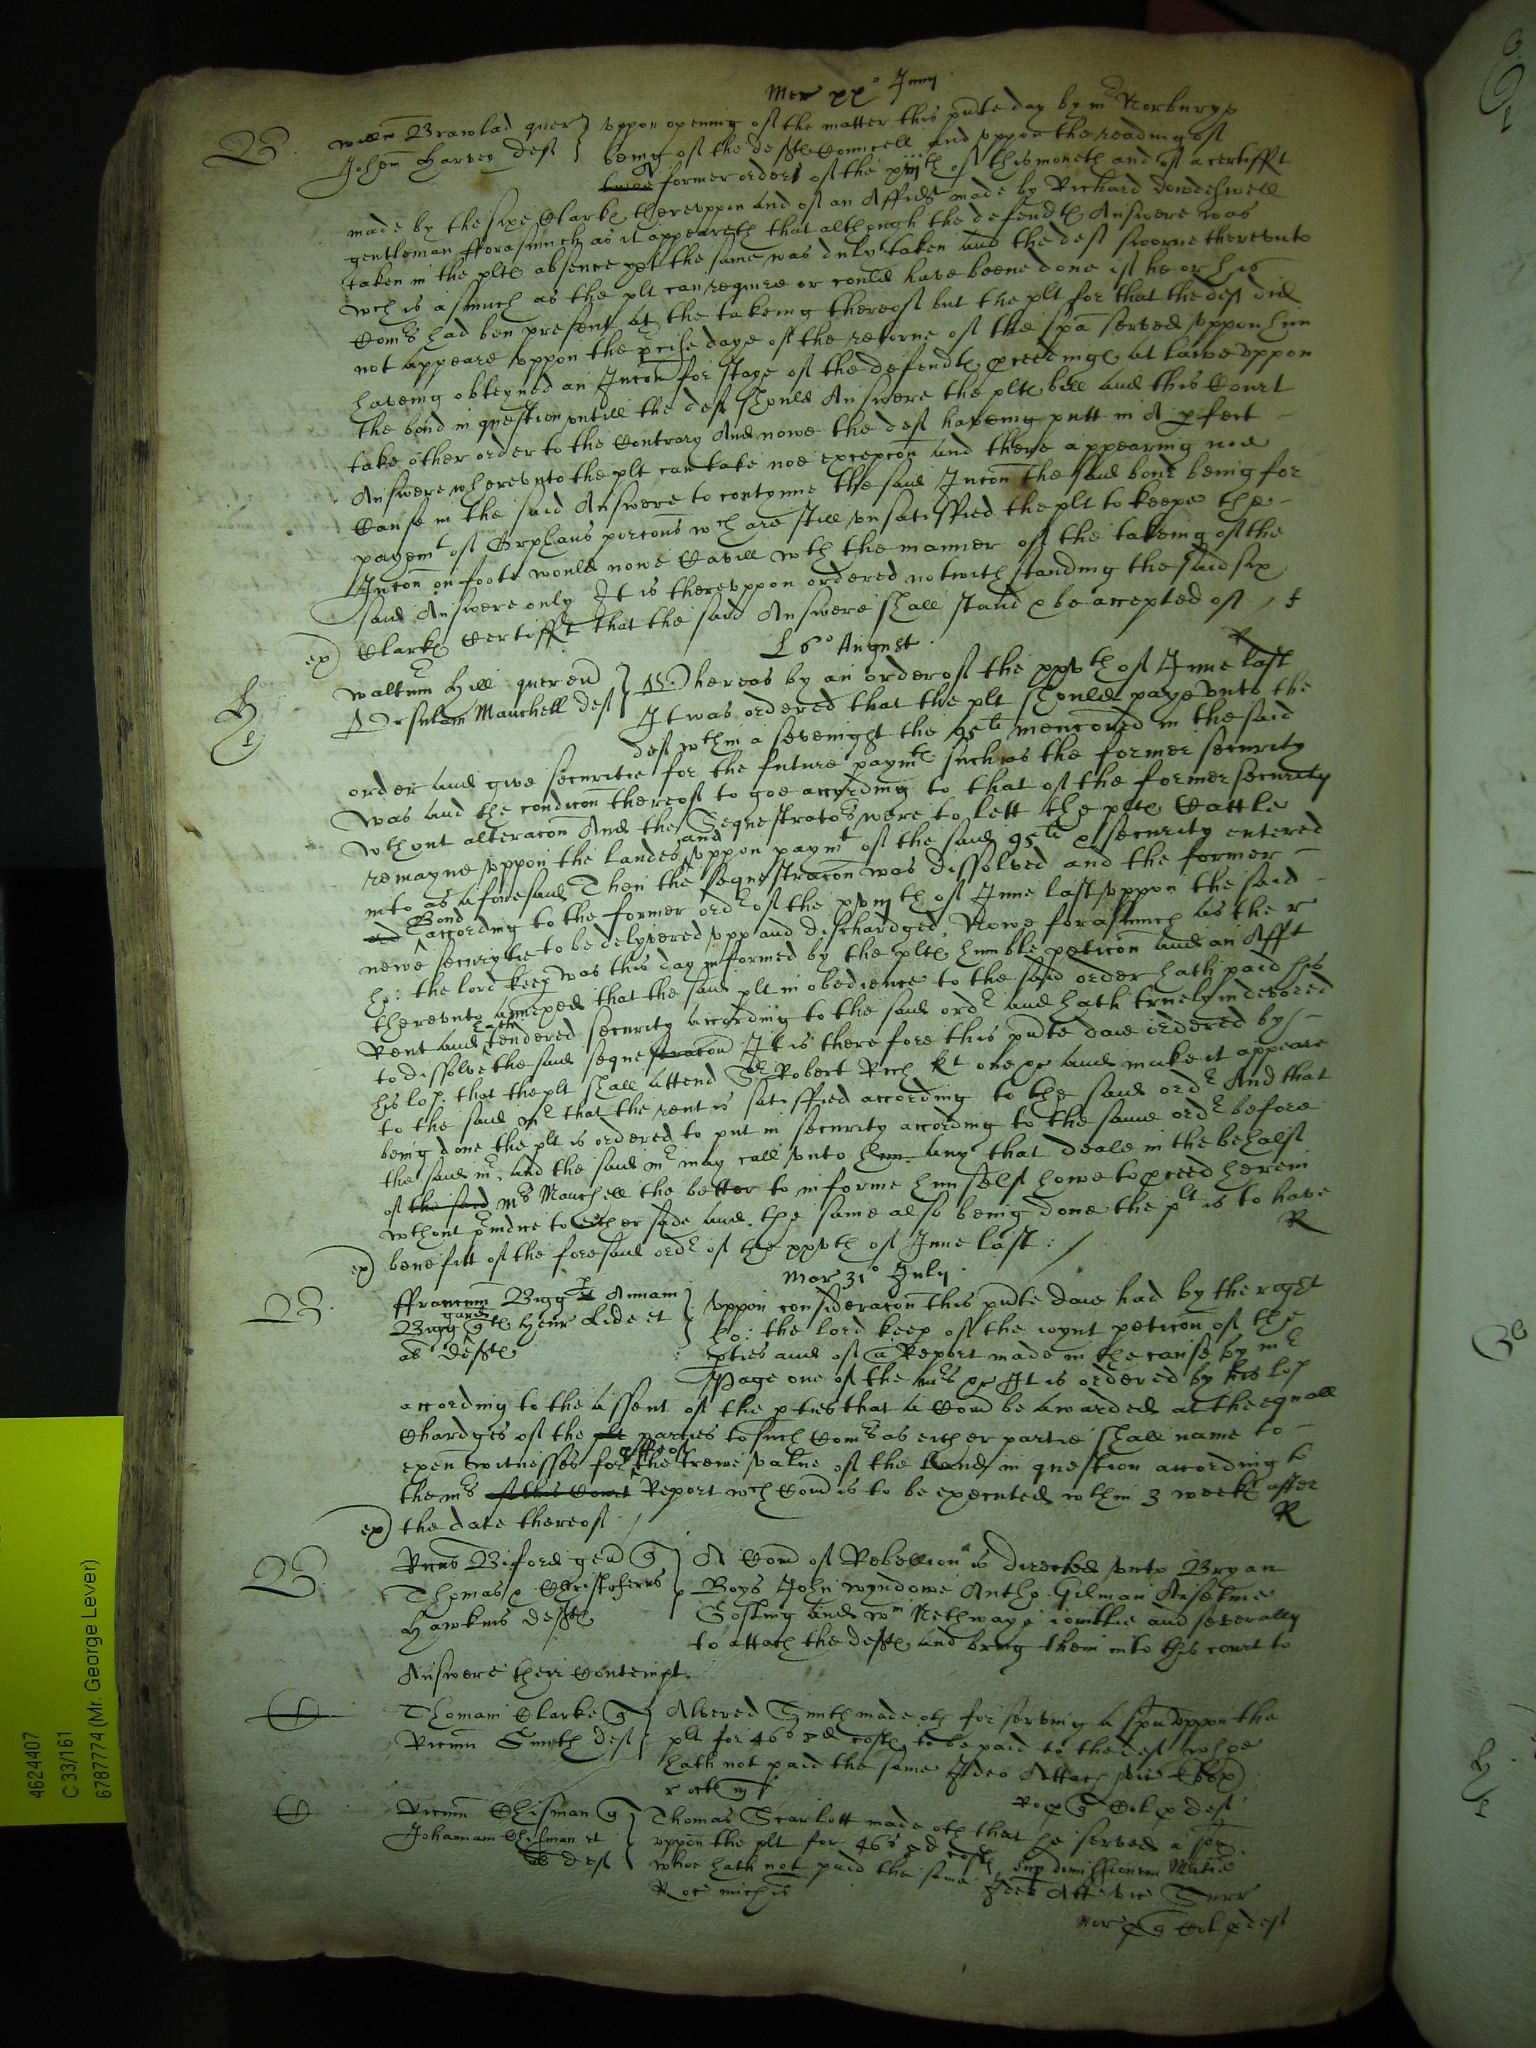 Mer xx° Junij
B. Willm Brawlad quer Johem Harvey deft
Uppon opening of the matter this pnte day by mr Norburye
being of the defts Councell and uppon the reading of
former orders of the xiijth of this moneth and of a certifft
made by the sixe Clarkes thereuppon and of an Affidt made by Richard Dowdeswell
gentleman fforasmuch as it appeareth that although the defendts Answere was
taken in the plts absence yet the same was duly taken and the deft sworne thereunto
wch is asmuch as the plt can require or could have beene done if he or his
Coms had ben present at the takeing thereof but the plt for that the deft did
not appeare uppon the prcise daye of the retorne of the spa served uppon him
haveing obteyned an Incon for staye of the defendts pceedings at lawe uppon
the bond in question untill the deft should Answere the plts bill and this Court
take other order to the Contrary And nowe the deft haveing putt in A pfect
Answere whereunto the plt can take noe excepcon and there appearing noe
Cause in the said Answere to contynue the said Incon the said bond being for
paymt of Orphans porcons wch are still unsatisfied the plt to keepe the
Incon on foote would nowe Cavill wth the manner of the takeing of the
said Answere only It is thereuppon ordered notwithstanding the said six
ex) Clarkes Certifft that the said Answere shall stand & be accepted of /
L 6° August
H Walterum Hill queren Ursulam Manchell deft
Whereas by an order of the xxvth of June last
It was ordered that the plt should paye unto the
deft wthin a sevenight the 95li mencoued in the said
order and give securitie for the future paymts such as the former security
was and the condicon thereof to goe according to that of the former security
wthout alteracon And the Sequestrators were to lett the plts Cattle
remayne uppon the landes and uppon paymt of the said 95li & security entered
into as aforesaid Then the sequestracon was dissolved and the former
Bond according to the former ordr of the xviijth of June last uppon the said
newe securytie to be delyvered upp and dischardged, Nowe forasmuch as the r
ho: the lord keepr was this day informed by the plts humble peticon and an Afft
thereunto annexed that the said plt in obedience to the said order hath paid his
Rent and hath tendered security according to the said ordr and hath truely indevored
to dissolve the said sequestracon It is therefore this pnte daie ordered by
his lop: that the plt shall attend Sr Robert Rich Kt one &c and make it appeare
to the said mr that the rent is satisffied according to the said ordr And that
being done the plt is ordered to put in security according to the same ordr before
the said mr, and the said mr may call unto him any that deale in the behalfe
of the said mrs Manchell the better to informe himself howe to pceed herein
wthout priudice to either side and the same also being done the plt is to have
ex) benefitt of the foresaid ordr of the xxvth of June last: /
R
Mar 31° July
B. ffrancum Bigg Annam Bigg gard Henr Lide et al defts
Uppon consideracon this pnte daie had by the right
ho: the lord keepr of the ioynt peticon of the
pties and of a Report made in the cause by mr
Page one of the mrs &c It is ordered by his lop
according to the assent of the pties that a Com be awarded at the equall
Chardges of the plt parties to such Coms as either partie shall name to
exen witnesses for the trewe value of the lands in question according to
the mrs of this Court Report wch Com is to be executed wthin 3 weekes after
ex) the date thereof
R
B. Ricus Biford gen q Thomas & Christoferus Hawkins defts
A Com of Rebellion is directed unto Bryan
Boys John wyndowe Antho Gilman Anselme
Gosling and wm Nethwaye ioyntlie and severally
to attach the defts and bring them into this court to
Answere their Contempt.
C Thomam Clarke q Ricum Smith deft
Alvered Smith made oth for serving a spa uppon the
plt for 46s 8d costs to be paid to the deft whoe
hath not paid the same Ideo Attach vic
r octb mich
C Ricum Chisman q Johannam Chisman et al deft
Thomas Scarlott made oth that he served a spa
uppon the plt for 46s 8d costs
whoe hath not paid the same Ideo Att vic Surr
Sup dimissionem Materie
Rot mich